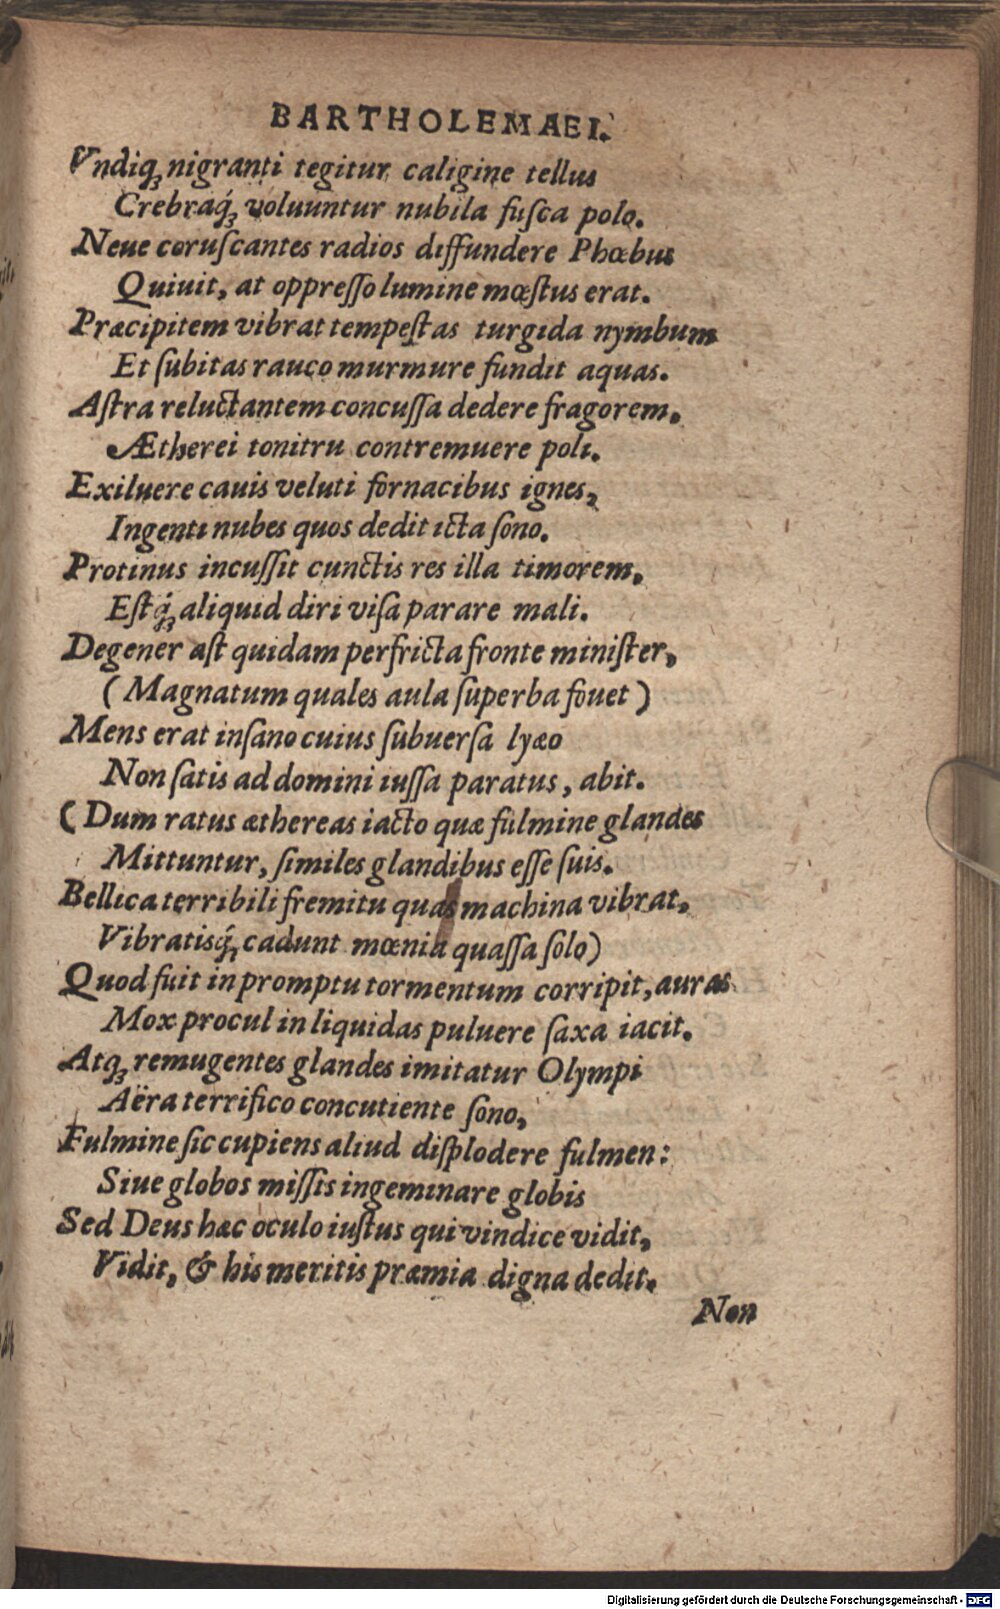 BARTHOLEMAEI.
Vndiq́; nigranti tegitur caligine tellus
Crebraq́; voluuntur nubila fuſca polo.
Neue coruſcantes radios diffundere Phœbus
Quiuit, at oppreſſo lumine mœſtus erat.
Præcipitem vibrat tempeſtas turgida nymbum
Et ſubitas rauco murmure fundit aquas.
Aſtra reluctantem concuſſa dedere fragorem,
Ætherei tonitru contremuere poli.
Exiluere cauis veluti fornacibus ignes,
Ingenti nubes quos dedit icta ſono.
Protinus incuſſit cunctis res illa timorem,
Eſtq́; aliquid diri viſa parare mali.
Degener aſt quidam perfricta fronte miniſter,
(Magnatum quales aula ſuperba fouet)
Mens erat inſano cuius ſubuerſa lyæo
Non ſatis ad domini iuſſa paratus, abit.
(Dum ratus æthereas iacto quæ fulmine glandes
Mittuntur, ſimiles glandibus eſſe ſuis.
Bellica terribili fremitu quas machina vibrat,
Vibratisq́; cadunt mœnia quaſſa ſolo)
Quod fuit in promptu tormentum corripit, auras
Mox procul in liquidas puluere ſaxa iacit.
Atq; remugentes glandes imitatur Olympi
Aëra terrifico concutiente ſono,
Fulmine ſic cupiens aliud diſplodere fulmen:
Siue globos miſſis ingeminare globis
Sed Deus hæc oculo iuſtus qui vindice vidit,
Vidit, & his meritis præmia digna dedit.
Non
Digitalisierung gefördert durch die Deutsche Forschungsgemeinschaft - DFG